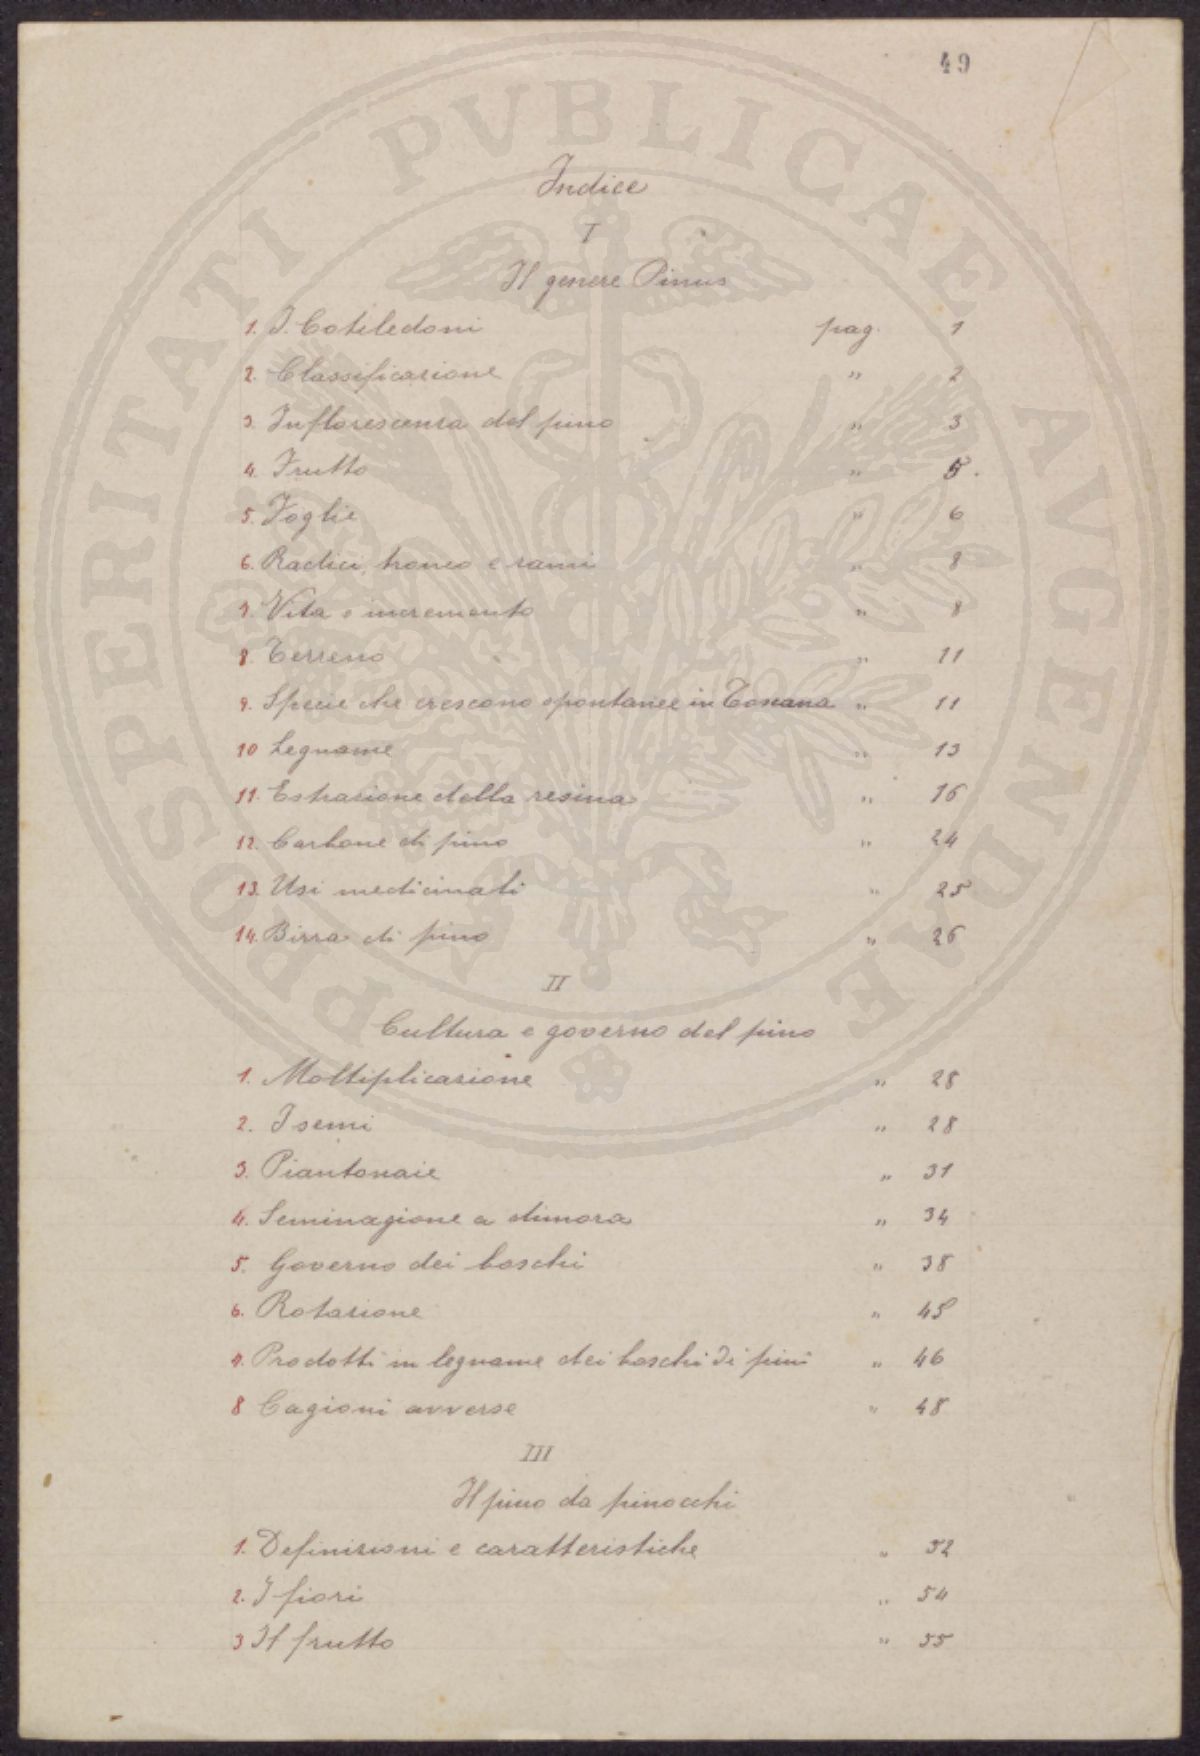 49
PROSPERITATI PVBLICAE AVGENDAE
Indice
I
Il genere Pinus
1. I Cotiledoni pag. 1
2. Classificazione " 2
3. Inflorescenza del pino " 3
4. Frutto " 5.
5. Foglie " 6
6. Radici, tronco e rami " 8
7. Vita e incremento " 8
8. Terreno " 11
9. Specie che crescono spontanee in Toscana " 11
10 Legname " 13
11. Estrazione della resina " 16
12. Carbone di pino " 24
13. Usi medicinali " 25
14. Birra di pino " 26
II
Cultura e governo del pino
1. Moltiplicazione " 28
2. I semi " 28
3. Piantonaie " 31
4. Seminagione a dimora " 34
5. Governo dei boschi " 38
6. Rotazione " 45
7. Prodotti in legname dei boschi di pini " 46
8 Cagioni avverse " 48
III
Il pino da pinocchi
1. Definizioni e caratteristiche " 52
2. I fiori " 54
3 Il frutto " 55